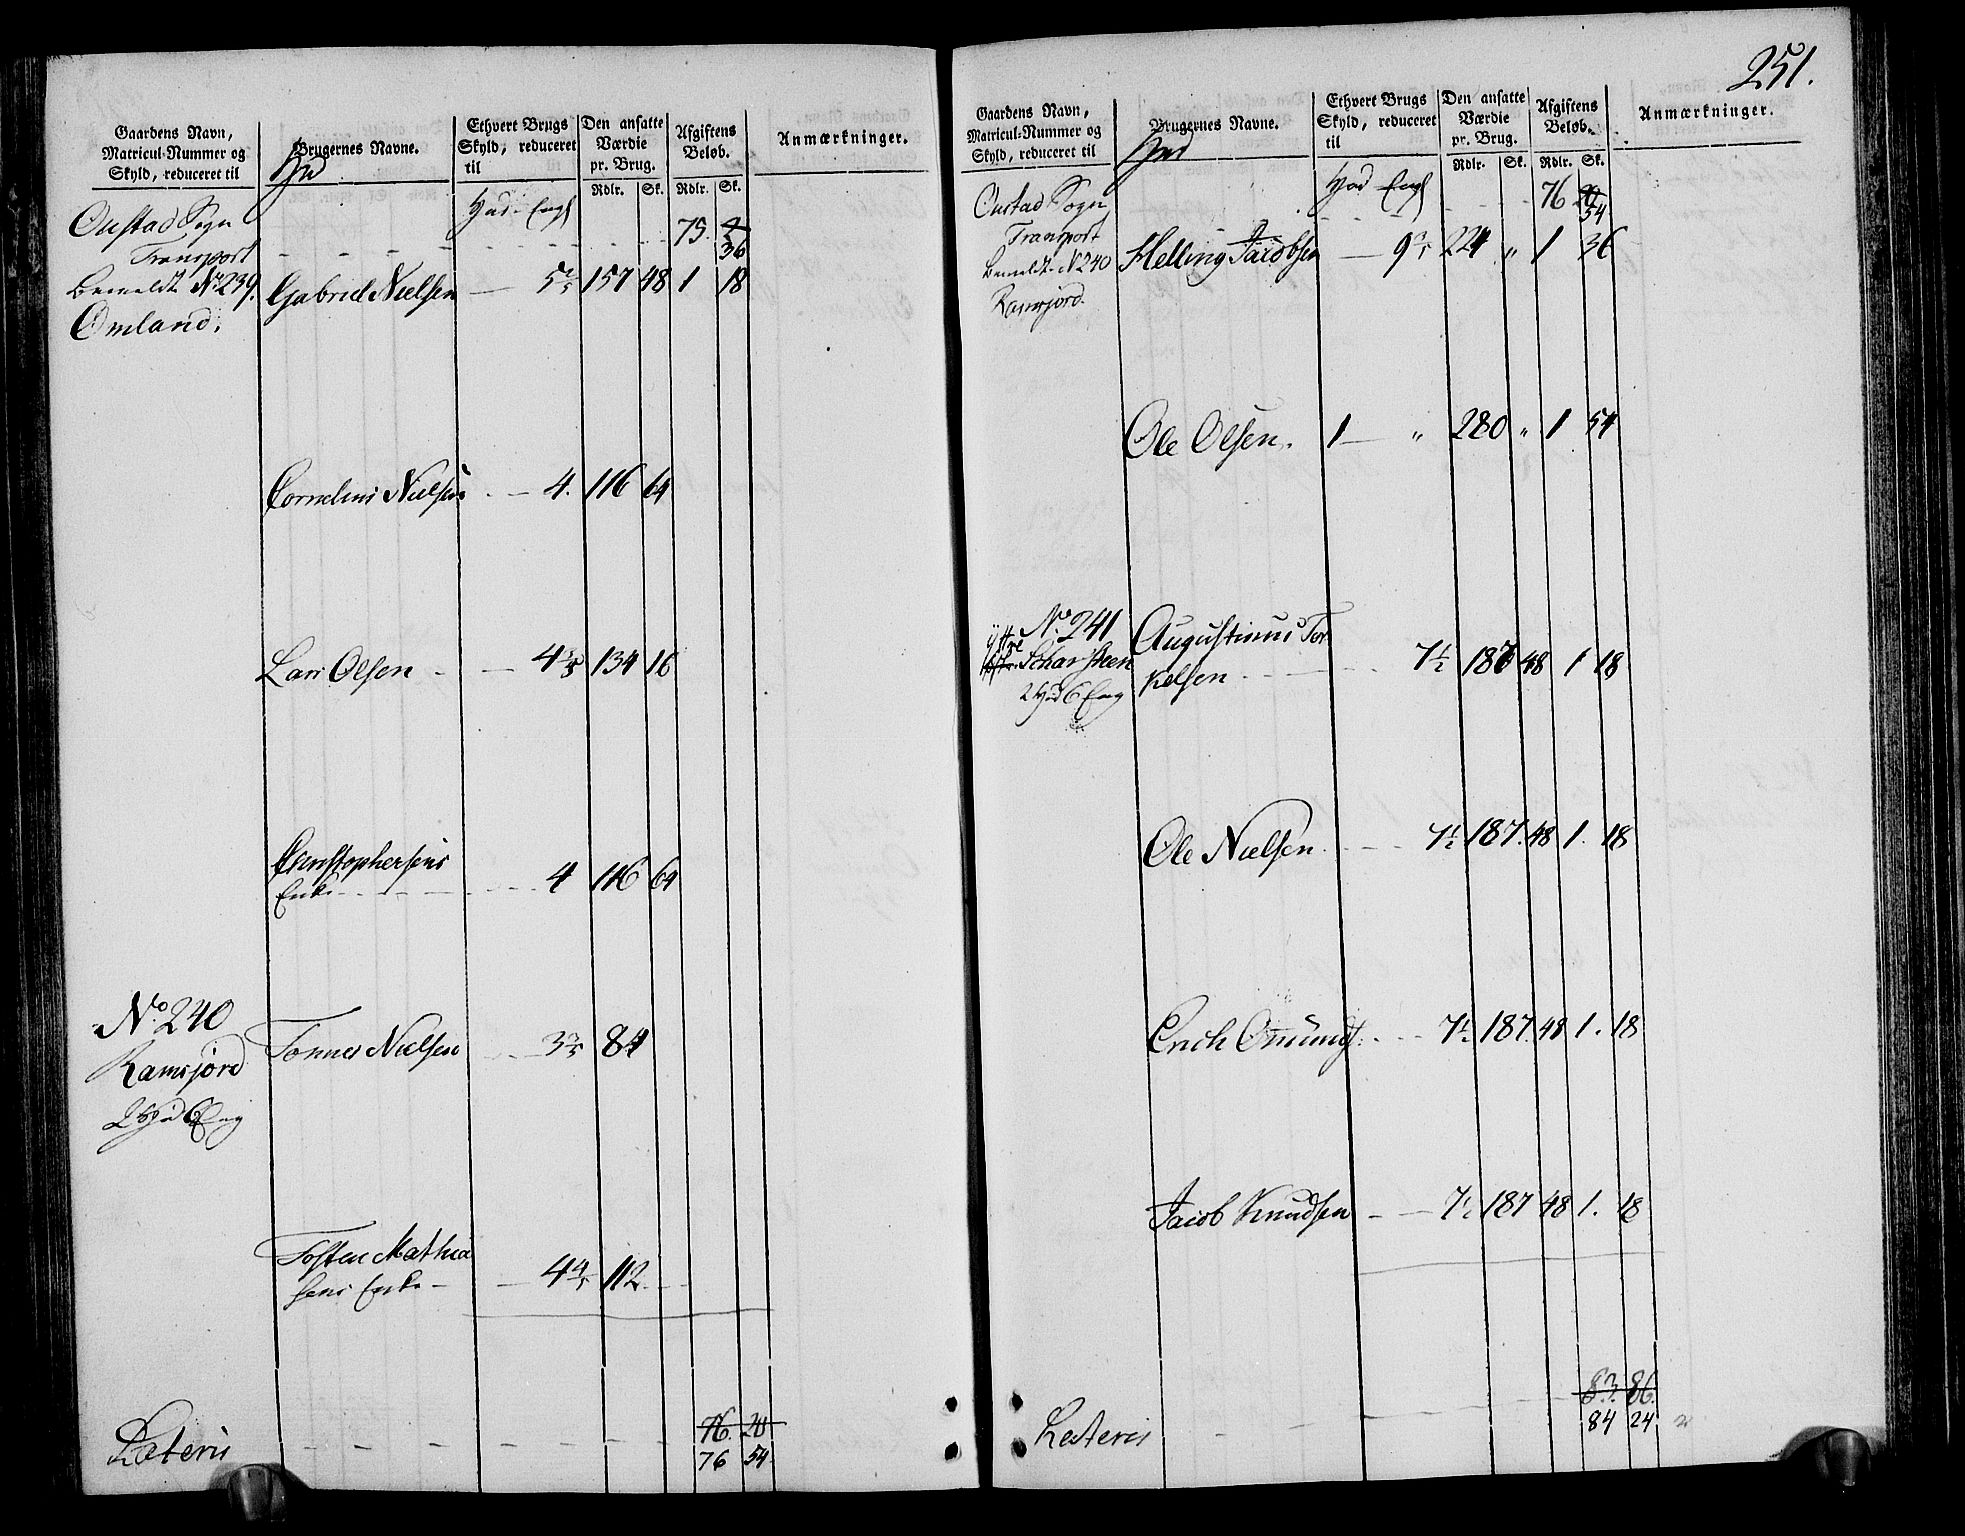 Gaardens Navn,
Matricul-Nummer og
Skyld, reduceret til
Brugernes Navne.
Hud
Ethvert Brugs
Skyld, reduceret
til
Den ansatte
Værdie
pr. Brug.
Rdlr. Sk.
Afgiftens
Beløb.
Rdlr. Sk.
Anmærkninger.
Oustad Sogn Hud Engl
Transport 75. 36
bemeldte No 239. Gabriel Nielsen 5 2/5 157 48 1 18
Omland.
Cornelius Nielsen 4. 116 64
Lars Olsen 4 3/5 134 16
Christophersens
Enke 4 116 64
No. 240
Ramsjord Tønnes Nielsen 3 3/5 84
2 Hud 6 Eng
Tosten Mathia
sens Enke 4 4/5 112
76. 20
Lateris 76 54
251.
Gaardens Navn,
Matricul-Nummer og
Skyld, reduceret til
Brugernes Navne.
Hud
Ethvert Brugs
Skyld, reduceret
til
Den ansatte
Værdie
pr. Brug.
Rdlr. Sk.
Afgiftens
Beløb.
Rdlr. Sk.
Anmærkninger.
Oustad Sogn Hud Engl 76 20
Transport 54
bemeldte No 240 Helling Jacobsen 9 3/5 224 " 1 36
Ramsjord.
Ole Olsen. 1 " 280 " 1 54
No. 241 Augustinus Tor
ÿttre Scharsteen kelsen 7 1/2 187 48 1 18
2 Hud 6 Eng
Ole Nielsen 7 1/2 187. 48 1. 18
Erich Omunds. 7 1/2 187. 48 1. 18
Jacob Knudsen 7 1/2 187 48 1. 18
83. 86.
Lateris 84 24